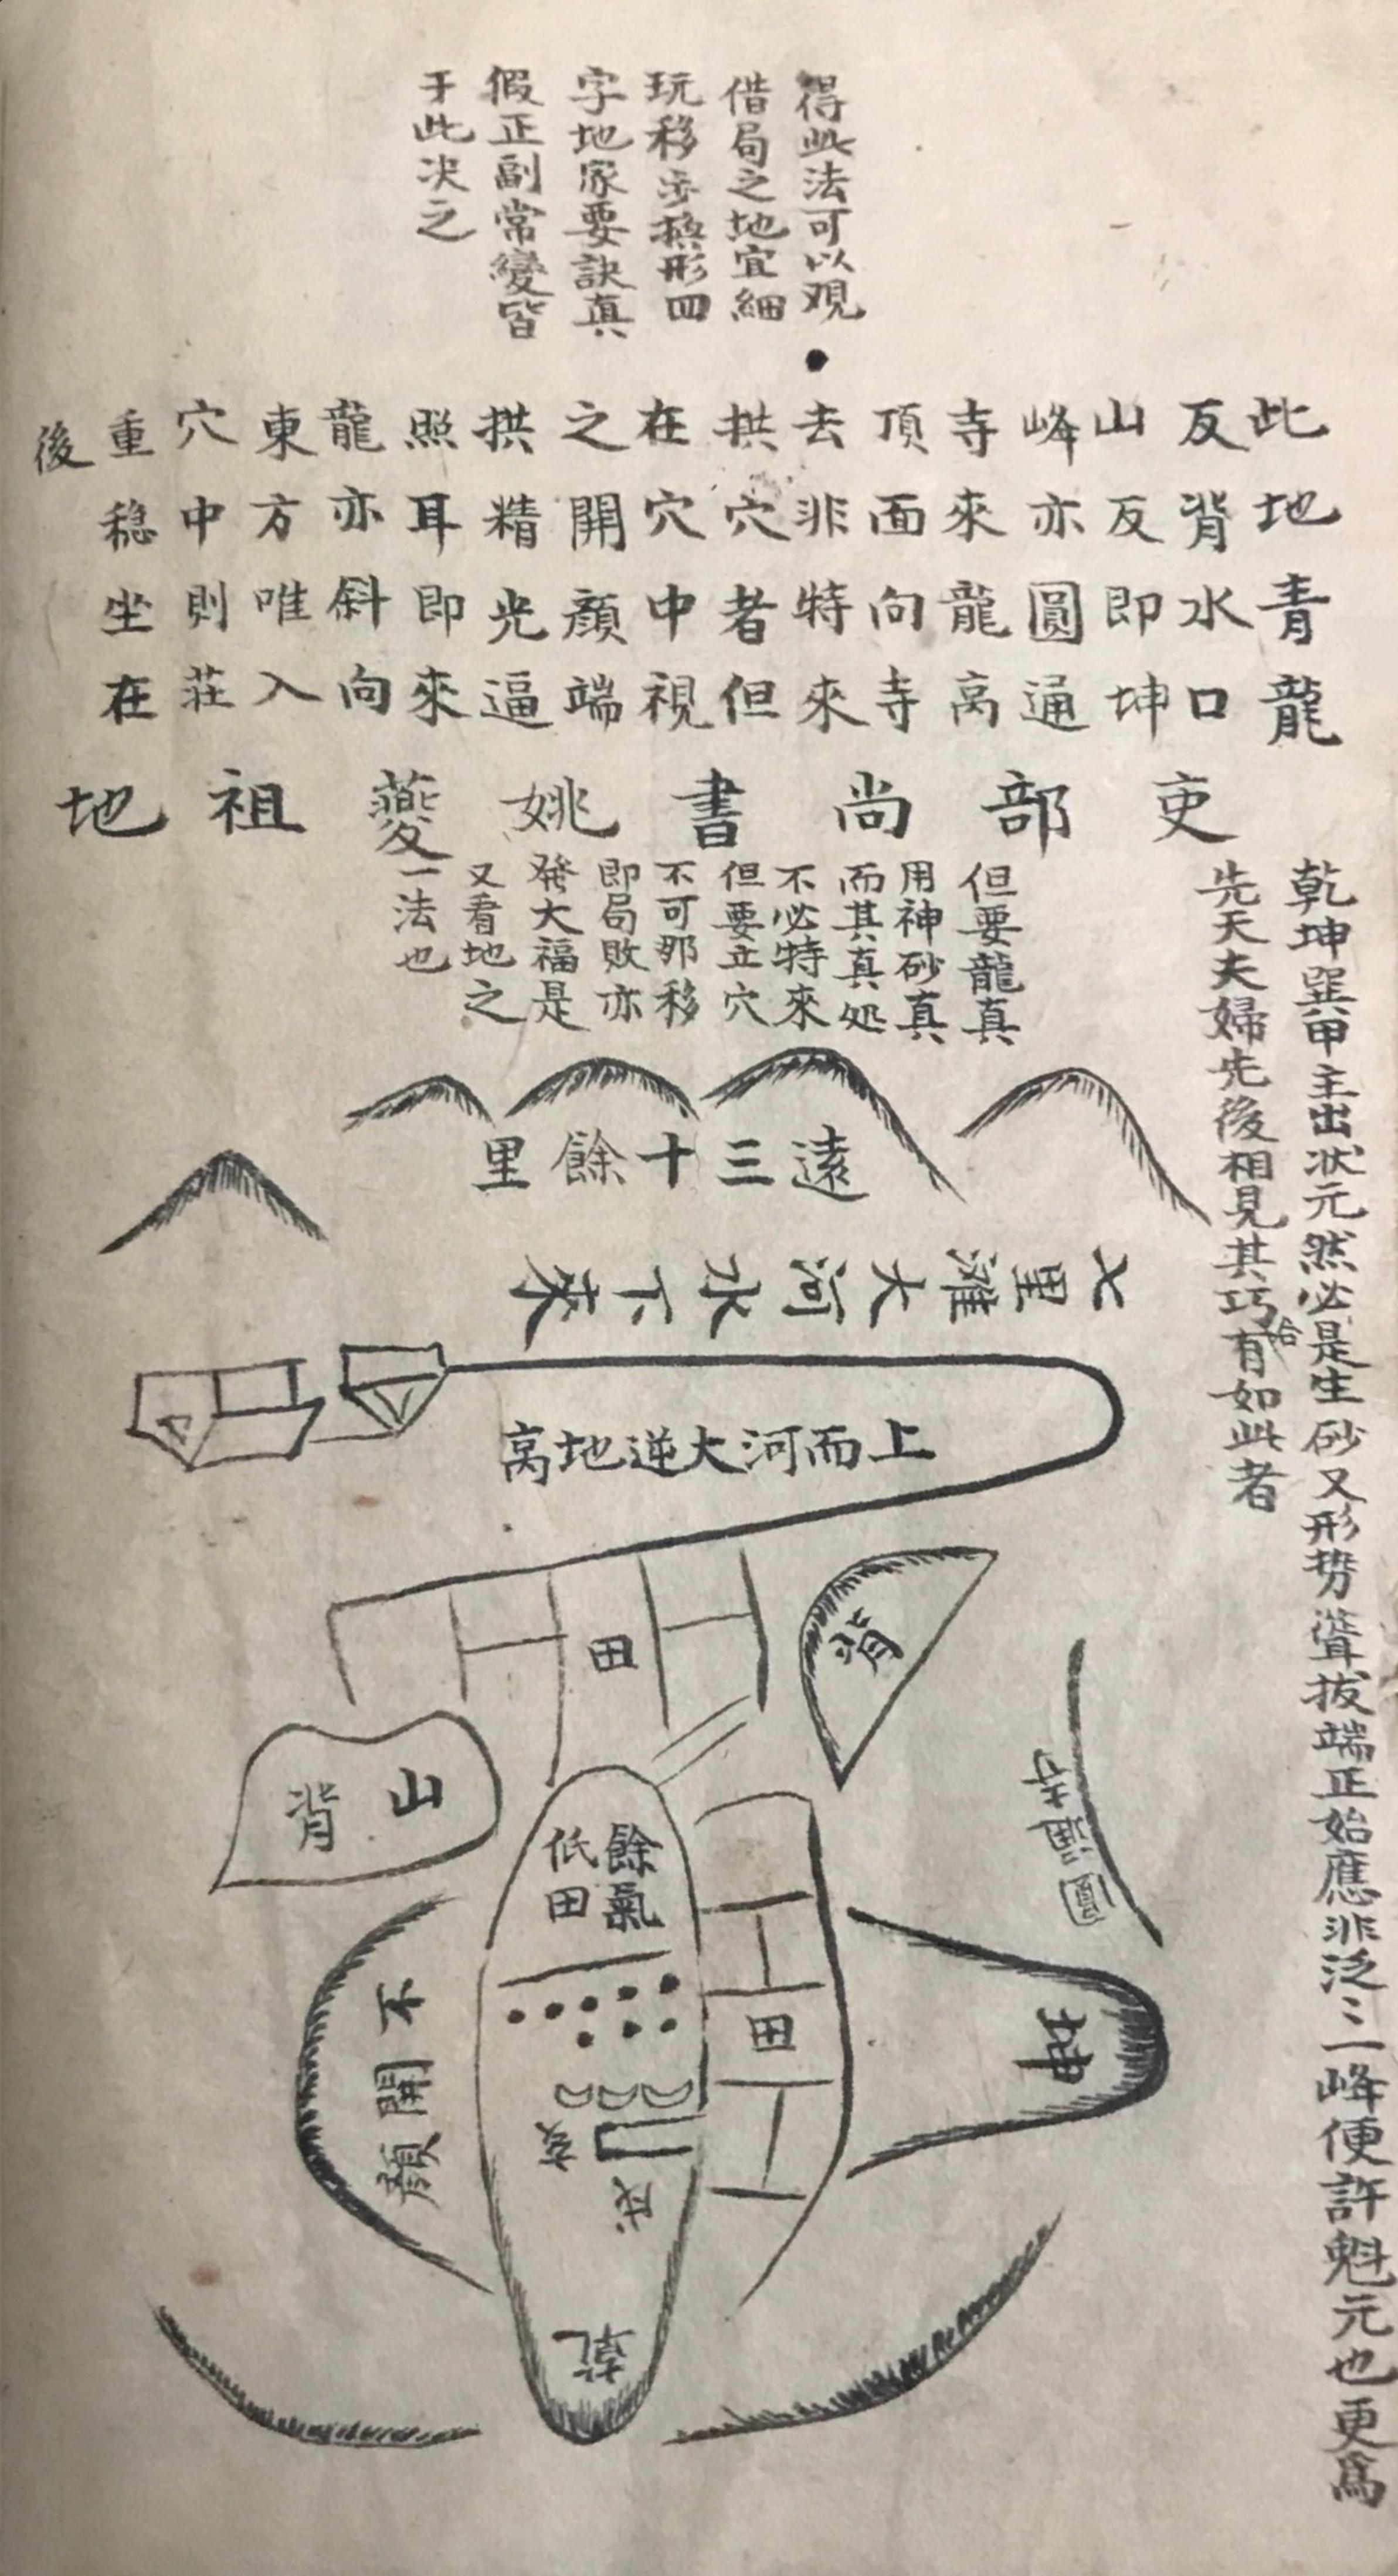 得此法可以观
借局之地宜細
玩移步換形四
字地家要訣真
假正副常變皆
于此决之
此地青龍
反背水口
山反即坤
峰亦圓通
寺來龍离
頂面向寺
去非特來
拱穴者但
在穴中視
之開顏端
拱精光逼
照耳即來
龍亦斜向
東方唯入
穴中則莊
重稳坐在
後
吏部尚書姚夔祖地
乾坤巽甲主出状元然必是生砂又形势聳拔端正始應非泛泛一峰便許魁元也更爲
先天夫婦先後相見其巧有如此者
恰
但要龍真
用神砂真
而其真处
不必特來
但要立穴
不可那移
即局敗亦
發大福是
又看地之
一法也
遠三十餘里
七里灘大河水下來
离地逆大河而上
背
田
山背
圓通寺
餘氣
低田
不開顏
田
坤
亥
戌
乾